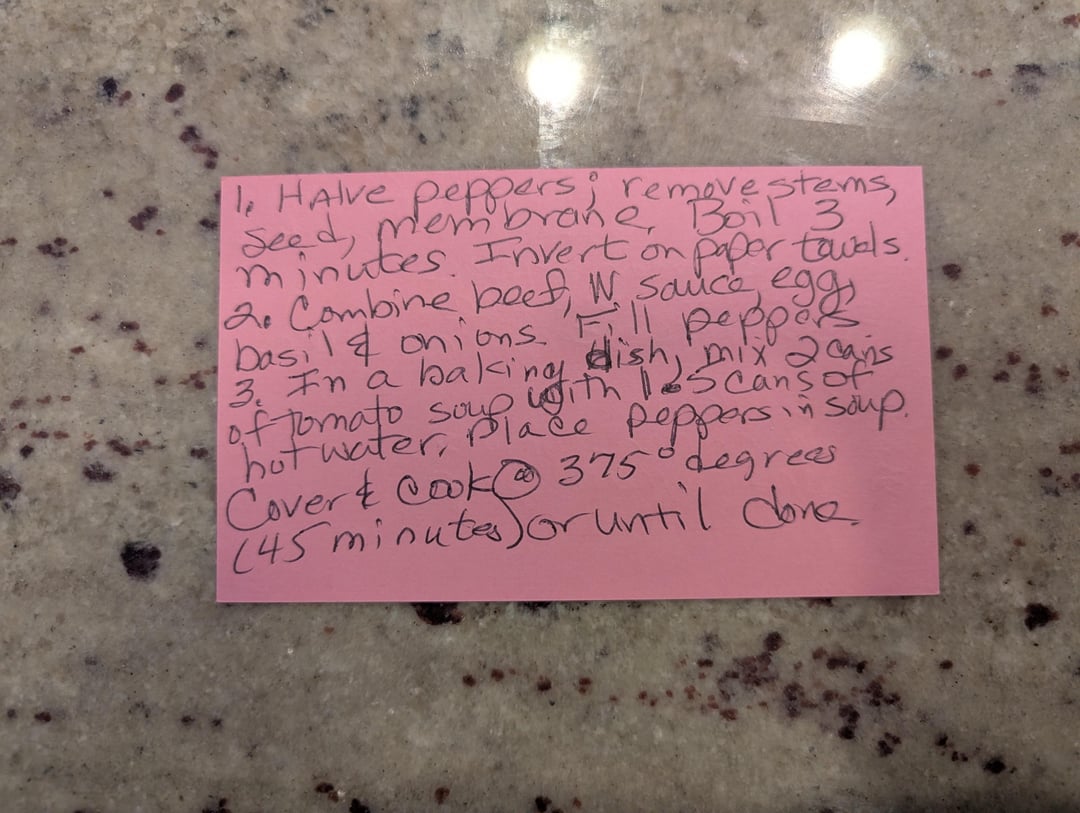 1. HAlve peppers; remove stems,
seed, membrane. Boil 3
minutes. Invert on paper towels.
2. Combine beef, W sauce, egg,
basil & onions. Fill peppers
3. In a baking dish, mix 2 cans
of tomato soup with 1.5 cans of
hot water, place peppers in soup.
Cover & cook @ 375° degrees
(45 minutes) or until done.